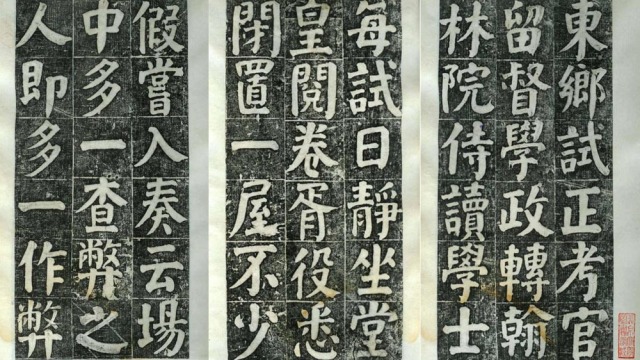 東鄉試正考官
留督學政轉翰
林院侍讀學士
每試日靜坐堂
皇閱卷胥役悉
閉置一屋不少
假嘗入奏云場
中多一查弊之
人即多一作弊